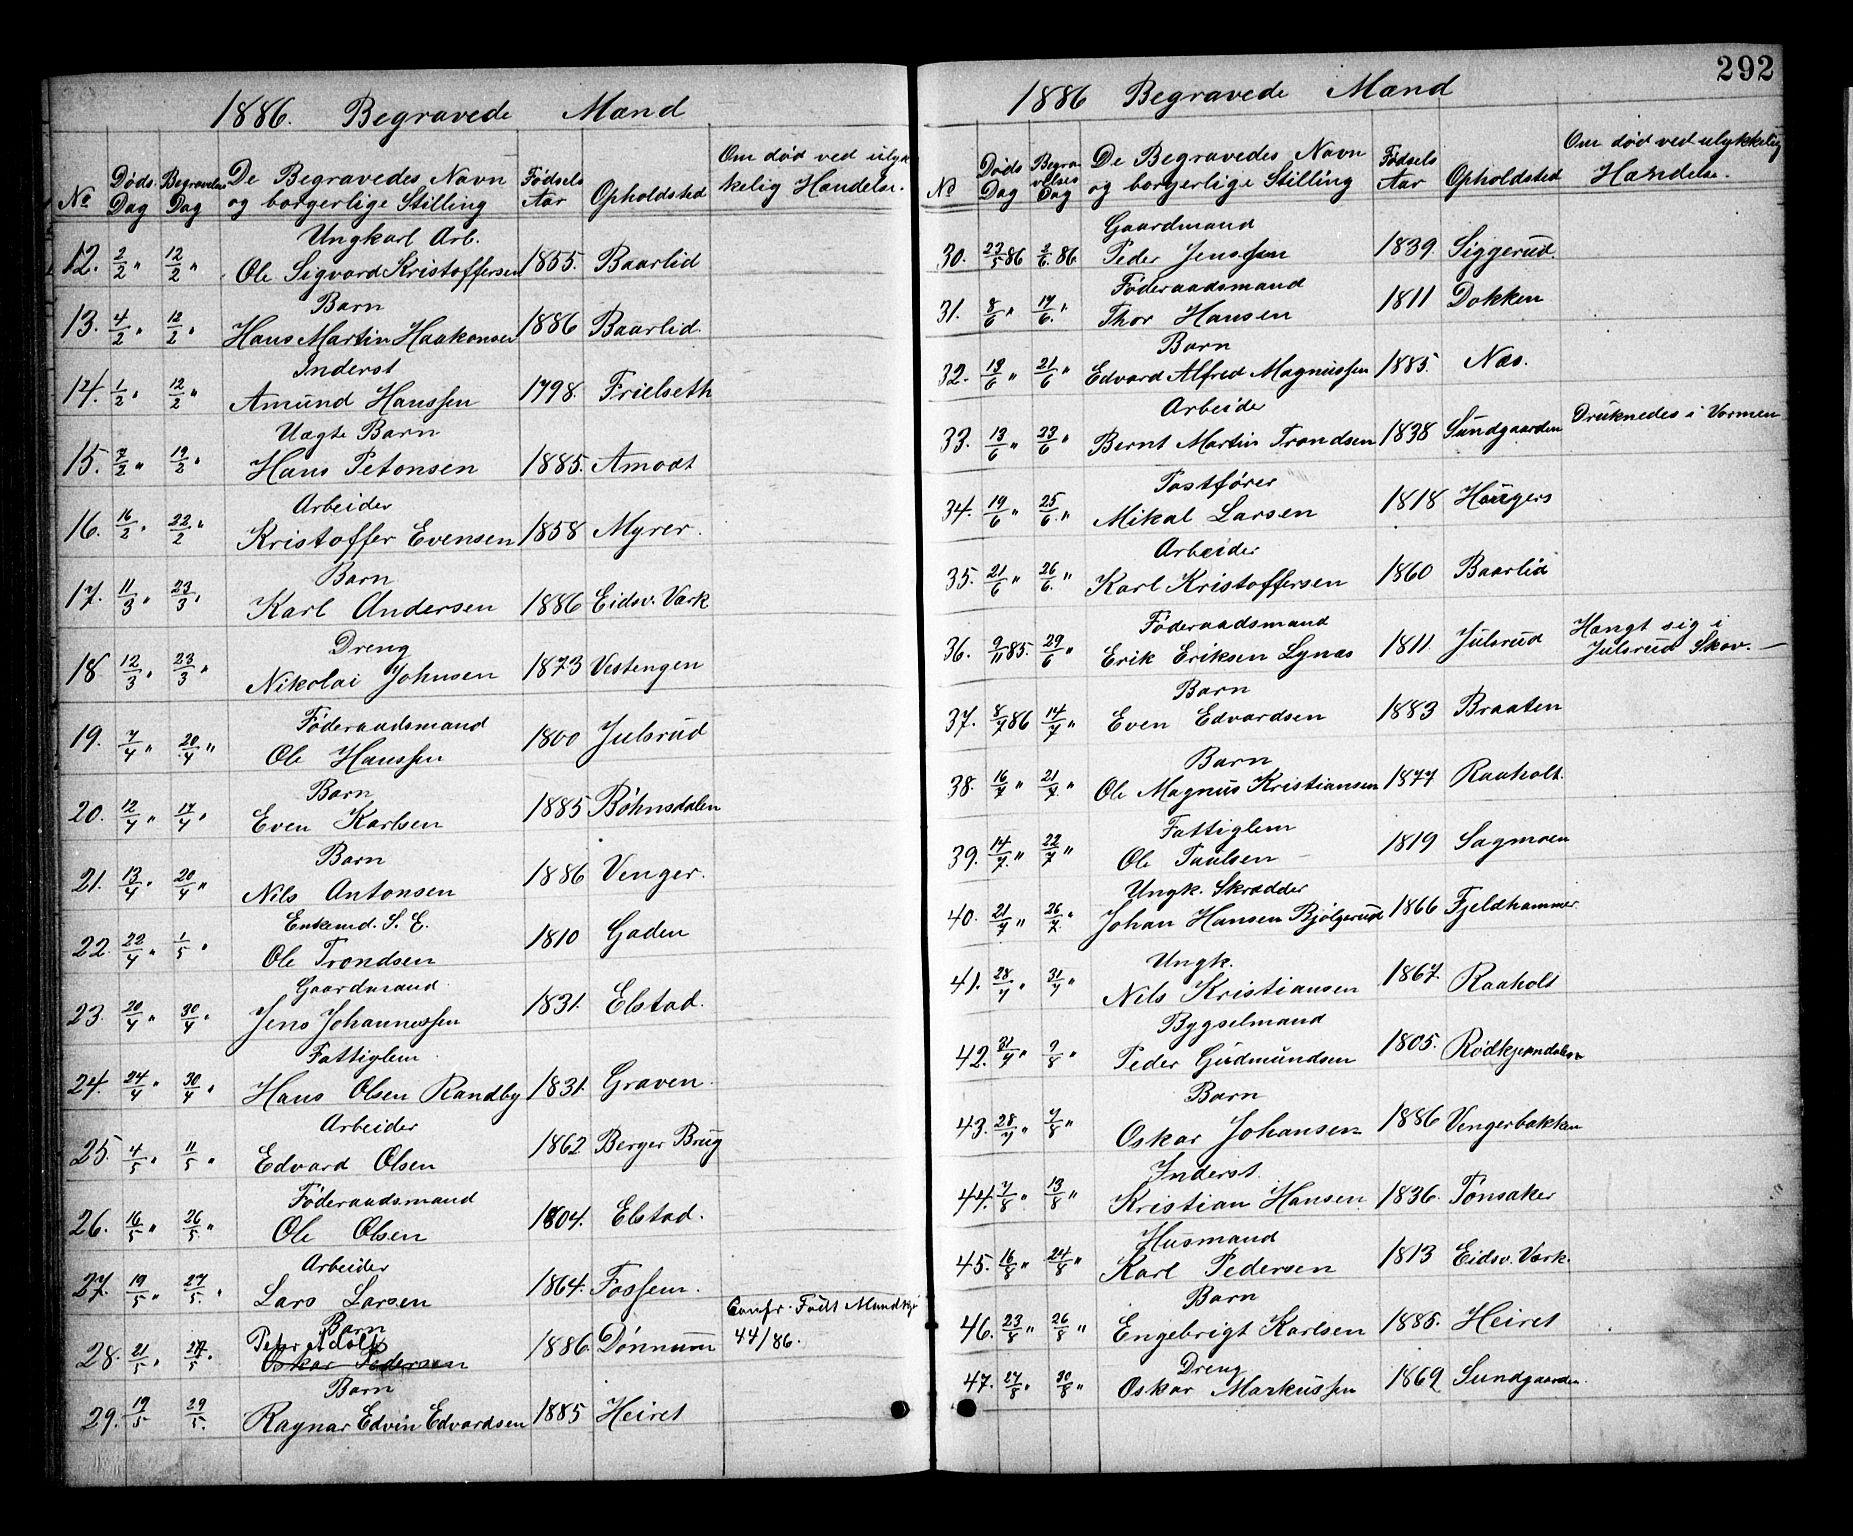 1886. Begravede Mænd
No Døds Dag Begravelses Dag De Begravedes Navn og borgerlige Stilling Fødsels Aar Opholdsted Om død ved ulykkelig Hændelse.
Ungkarl Arb.
12. 2/2 " 12/2 " Ole Sigvard Kristoffersen 1855. Baarlid
Barn
13. 4/2 " 12/2 " Hans Martin Haakonsen 1886 Baarlid.
Inderst
14. 1/2 " 12/2 " Amund Hanssen 1798. Frilseth
Uægte Barn
15. 7/2 " 19/2 " Hans Petonsen 1885. Amodt
Arbeider
16. 16/2 " 22/2 " Kristoffer Evensen 1858 Myrer.
Barn
17. 11/3 " 23/3 " Karl Andersen 1886 Eidsv. Værk
Dreng
18 12/3 " 23/3 " Nikolai Johnsen 1873 Vestengen
Føderaadsmand
19. 7/4 " 20/4 " Ole Hanssen 1800 Julsrud
Barn
20. 12/4 " 17/4 " Even Karlsen 1885 Bøhnsdalen
Barn
21. 13/4 " 20/4 " Nils Antonsen 1886 Venger.
Enkemd. S. E.
22. 22/4 " 1/5 " Ole Trondsen 1810 Gaden
Gaardmand.
23. 20/4 " 30/4 " Jens Johannessen 1831. Elstad.
Fattiglem
24. 24/4 " 30/4 " Hans Olsen Randby 1831. Graven.
Arbeider
25. 4/5 " 11/5 " Edvard Olsen 1862 Berger Brug
Føderaadsmand
26. 16/5 " 26/5 " Ole Olsen 1804. Elstad.
Arbeider
27. 19/5 " 27/5 " Lars Larsen 1864. Fossum.
Barn Confr. Født Mandkj
Peter Adolf 44/86.
28. 21/5 " 27/5 " Oskar Pedersen 1886. Dønnum
Barn
29. 19/5 29/5 Ragnar Edvin Edvardsen 1885 Heiret
292
1886 Begravede Mænd
No Døds Dag Begravelses Dag De Begravedes Navn og borgerlige Stilling Fødsels Aar Opholdsted Om død ved ulykkelig Hændelse.
Gaardmand
30. 23/5 86 2/6 86 Peder Jenssen 1839. Siggerud.
Føderaadsmand
31. 8/6 " 17/6 " Thor Hansen 1811 Dokken
Barn
32. 13/6 " 21/6 " Edvard Alfred Magnussen 1885. Næs.
Arbeider
33. 13/6 " 23/6 " Bernt Martin Trondsen 1838 Sundgaarden Druknedes i Vormen
Postfører
34. 19/6 " 25/6 " Mikal Larsen 1818 Haugers
Arbeider
35. 21/6 " 26/6 " Karl Kristoffersen 1860 Baarlid
Føderaadsmand Hængt sig i
36. 9/11 85. 29/6 " Erik Eriksen Lynæs 1811. Julsrud Julsrud Skov.
Barn
37. 8/7 86 14/7 " Even Edvardsen 1883 Braaten
Barn
38. 16/7 " 21/7 " Ole Magnus Kristiansen 1877 Raaholt.
Fattiglem
39. 14/7 " 22/7 " Ole Paulsen 1819 Sagmoen
Ungk. Skrædder
40. 21/7 " 26/7 " Johan Hansen Bjølgerud 1866 Fjeldhammer.
Ungk.
41. 28/7 " 31/7 " Nils Kristiansen 1867. Raaholt
Bygselmand
42. 31/7 " 7/8 " Peder Gudmundsen 1805. Rødkjerndalen
Barn
43. 28/7 " 7/8 " Oskar Johansen 1886 Vengerbakken
Inderst.
44. 7/8 " 13/8 " Kristian Hansen 1836. Tonsaker
Husmand
45. 16/8 " 24/8 " Karl Pedersen 1813 Eidsv. Værk.
Barn
46. 23/8 " 26/8 " Engebrigt Karlsen 1885. Heiret
Dreng
47. 27/8 " 30/8 " Oskar Markussen 1869 Sundgaarden.